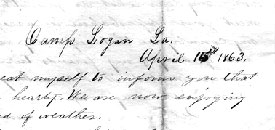 Camp Logan La.
April 15th 1863.
eat myself to inform you that
heart. We are now enjoying
d of weather.